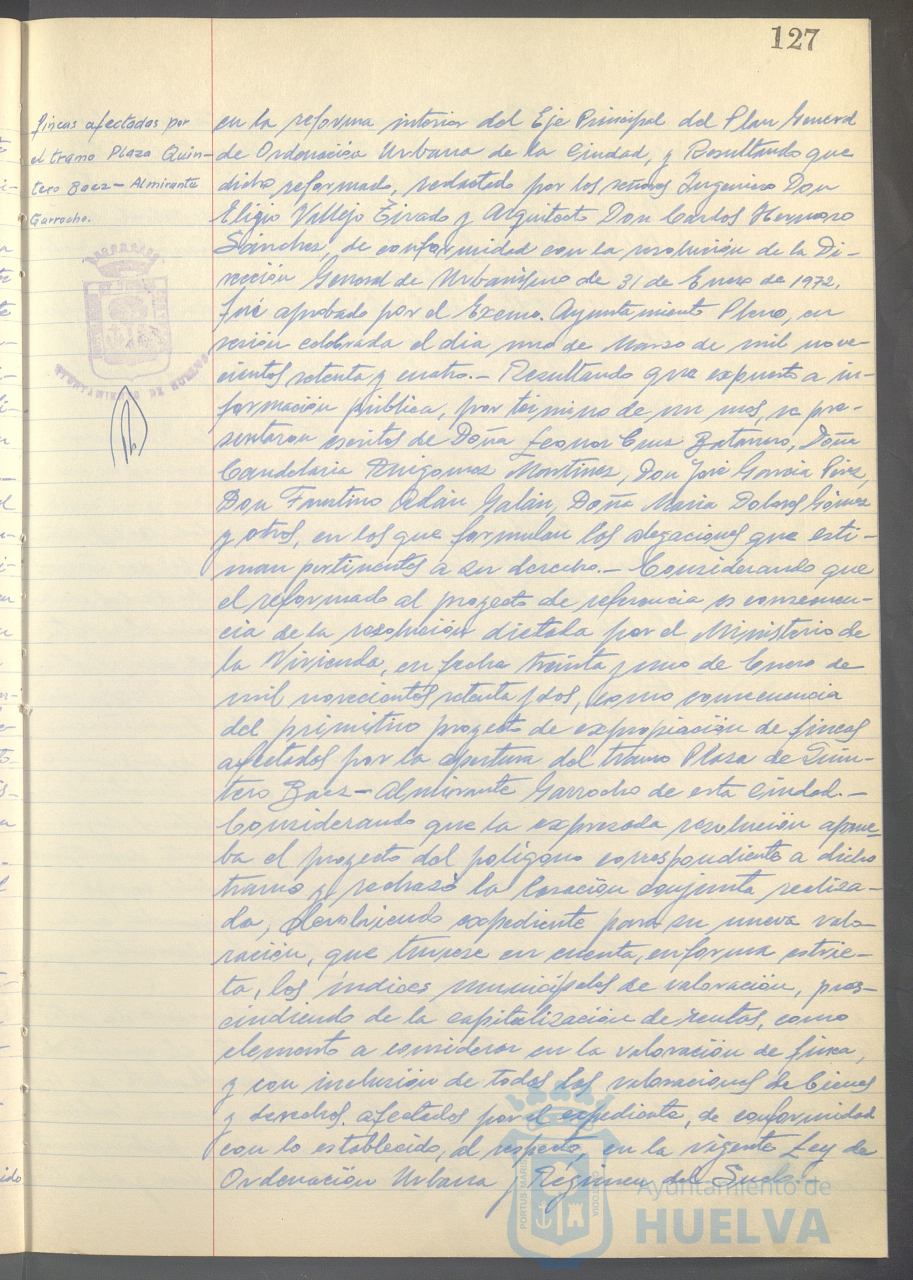 127
fincas afectadas por
el tramo Plaza Quin-
tero Baez - Almirante
Garrocho.
AYUNTAMIENTO DE HUELVA
en la reforma interior del Eje Principal del Plan General
de Ordenación Urbana de la Ciudad, y Resultando que
dicho reformado, redactado por los señores Ingeniero Don
Eligio Vallejo Eivado y Arquitecto Don Carlos Hermoso
Sánchez, de conformidad con la resolución de la Di-
rección General de Urbanismo de 31 de Enero de 1972,
fué aprobado por el Excmo. Ayuntamiento Pleno, en
sesión celebrada el día uno de Marzo de mil nove-
cientos setenta y cuatro.- Resultando que expuesto a in-
formación pública, por término de un mes, se pre-
sentaron escritos de Doña Leonor Cruz Batanero, Doña
Candelaria Martínez, Don José García Pérez,
Don Faustino Adán Galán, Doña María Dolores Gómez
y otros, en los que formulan las alegaciones que esti-
man pertinentes a su derecho.- Considerando que
el reformado al proyecto de referencia es consecuen-
cia de la resolución dictada por el Ministerio de
la Vivienda, en fecha treinta y uno de Enero de
mil novecientos setenta y dos, como consecuencia
del primitivo proyecto de expropiación de fincas
afectadas por la apertura del tramo Plaza de Quin-
tero Baez - Almirante Garrocho de esta Ciudad.-
Considerando que la expresada resolución aprue-
ba el proyecto del polígono correspondiente a dicho
tramo y rechazó la tasación conjunta realiza-
da, devolviendo expediente para su nueva valo-
ración, que tuviese en cuenta, en forma estric-
ta, los índices municipales de valoración, pres-
cindiendo de la capitalización de rentas, como
elemento a considerar en la valoración de finca,
y con inclusión de todas las valoraciones de bienes
y derechos afectados por el expediente, de conformidad
con lo establecido, al respecto, en la vigente Ley de
Ordenación Urbana y Régimen del Suelo.-
PORTUS MARIS CUSTODIA
Ayuntamiento de
HUELVA